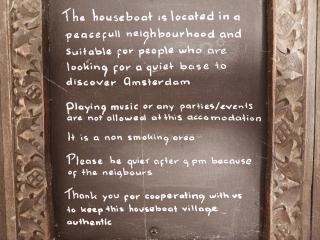 The houseboat is located in a
peacefull neighbourhood and
suitable for people who are
looking for a quiet base to
discover Amsterdam
Playing music or any parties/events
are not allowed at this accomodation
It is a non smoking area
Please be quiet after 9 pm because
of the neighbours
Thank you for cooperating with us
to keep this houseboat village
authentic